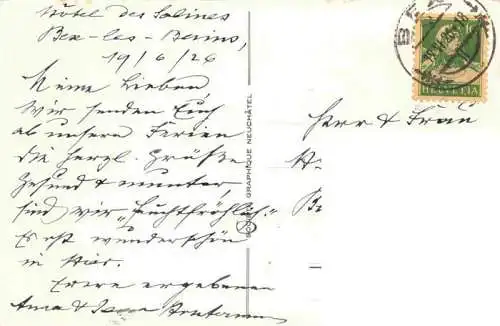 Hôtel des Salines
Bex-les-Bains,
19/6/26
Meine Lieben,
Wir senden Euch
ab unsern Ferien
die herzl. Grüße
Gesund & munter,
sind wir „feuchtfröhlich."
Es ist wunderschön
in hier.
Eure ergebenen
Anna &
HELVETIA
GRAPHIQUE NEUCHÂTEL
Herr & Frau